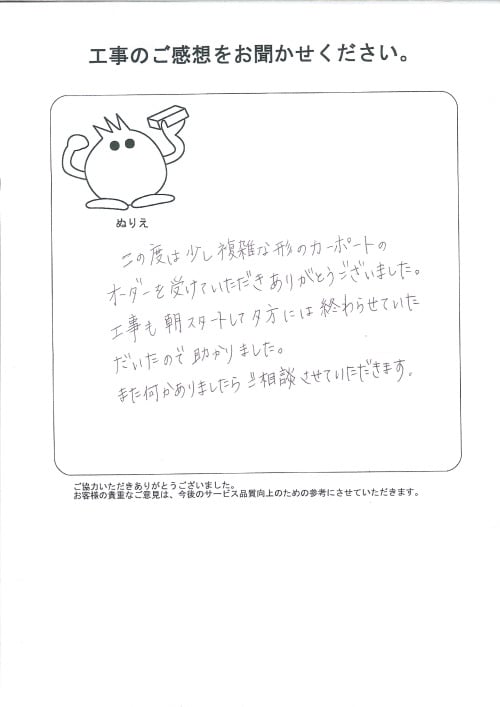 工事のご感想をお聞かせください。
ぬりえ
この度は少し複雑な形のカーポートの
オーダーを受けていただきありがとうございました。
工事も朝スタートして夕方には終わらせていた
だいたので助かりました。
また何かありましたらご相談させていただきます。
ご協力いただきありがとうございました。
お客様の貴重なご意見は、今後のサービス品質向上のための参考にさせていただきます。